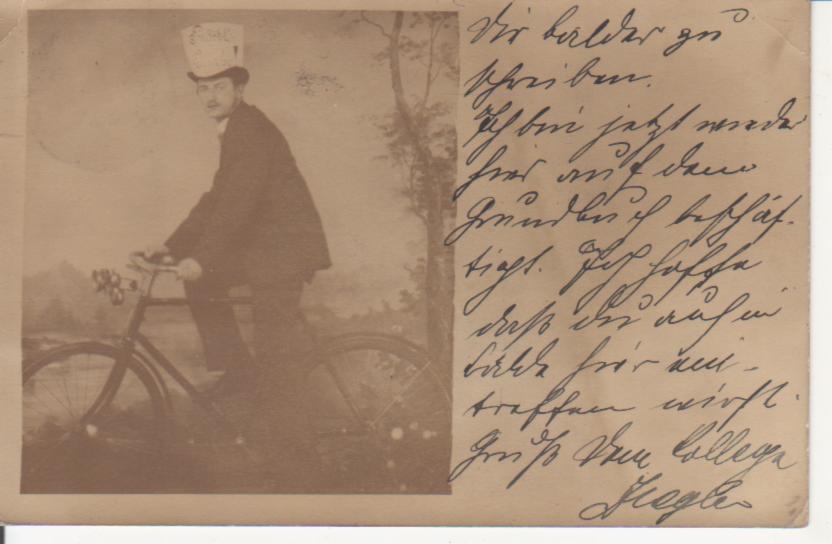 Dir balder zu
schreiben.
Ich bin jetzt wieder
hier auf dem
Grundbuch beschäf-
tigt. Ich hoffe
daß du auch in
Bälde hier ein-
treffen wirst.
Gruß Dein College